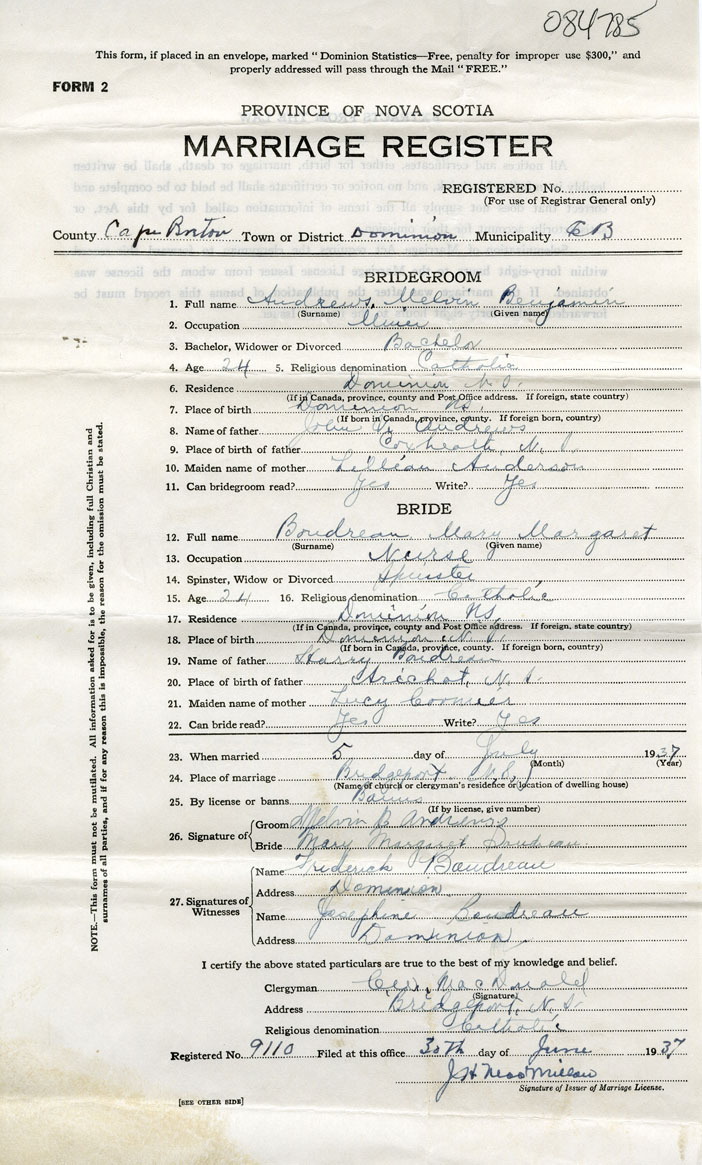 084785
This form, if placed in an envelope, marked "Dominion Statistics—Free, penalty for improper use $300," and
properly addressed will pass through the Mail "FREE."
FORM 2
PROVINCE OF NOVA SCOTIA
MARRIAGE REGISTER
REGISTERED No.
(For use of Registrar General only)
County Cape Breton Town or District Dominion Municipality CB
BRIDEGROOM
1. Full name Andrews, Melvin Benjamin
(Surname) (Given name)
2. Occupation Miner
3. Bachelor, Widower or Divorced Bachelor
4. Age 24 5. Religious denomination Catholic
6. Residence Dominion N.S.
(If in Canada, province, county and Post Office address. If foreign, state country)
7. Place of birth Dominion NS.
(If born in Canada, province, county. If foreign born, country)
8. Name of father John Andrews
9. Place of birth of father Coxheath, N.S.
10. Maiden name of mother Lillian Anderson
11. Can bridegroom read? Yes Write? Yes
BRIDE
12. Full name Boudreau, Mary Margaret
(Surname) (Given name)
13. Occupation Nurse
14. Spinster, Widow or Divorced Spinster
15. Age 24 16. Religious denomination Catholic
17. Residence Dominion NS.
(If in Canada, province, county and Post Office address. If foreign, state country)
18. Place of birth Dominion N.S.
(If born in Canada, province, county. If foreign born, country)
19. Name of father Harry Boudreau
20. Place of birth of father Arichat, N.S.
21. Maiden name of mother Lucy
22. Can bride read? Yes Write? Yes
23. When married 5 day of July 1937
(Month) (Year)
24. Place of marriage Bridgeport N.S.
(Name of church or clergyman's residence or location of dwelling house)
25. By license or banns Banns
(If by license, give number)
26. Signature of
Groom Melvin B Andrews
Bride Mary Margaret Boudreau
27. Signatures of Witnesses
Name Frederick Boudreau
Address Dominion
Name Josephine Boudreau
Address Dominion
I certify the above stated particulars are true to the best of my knowledge and belief.
Clergyman MacDonald
(Signature)
Address Bridgeport, N.S.
Religious denomination Catholic
Registered No. 9110 Filed at this office 30th day of June 1937
J H MacMillan
Signature of Issuer of Marriage License.
[SEE OTHER SIDE]
NOTE.—This form must not be mutilated. All information asked for is to be given, including full Christian and
surnames of all parties, and if for any reason this is impossible, the reason for the omission must be stated.